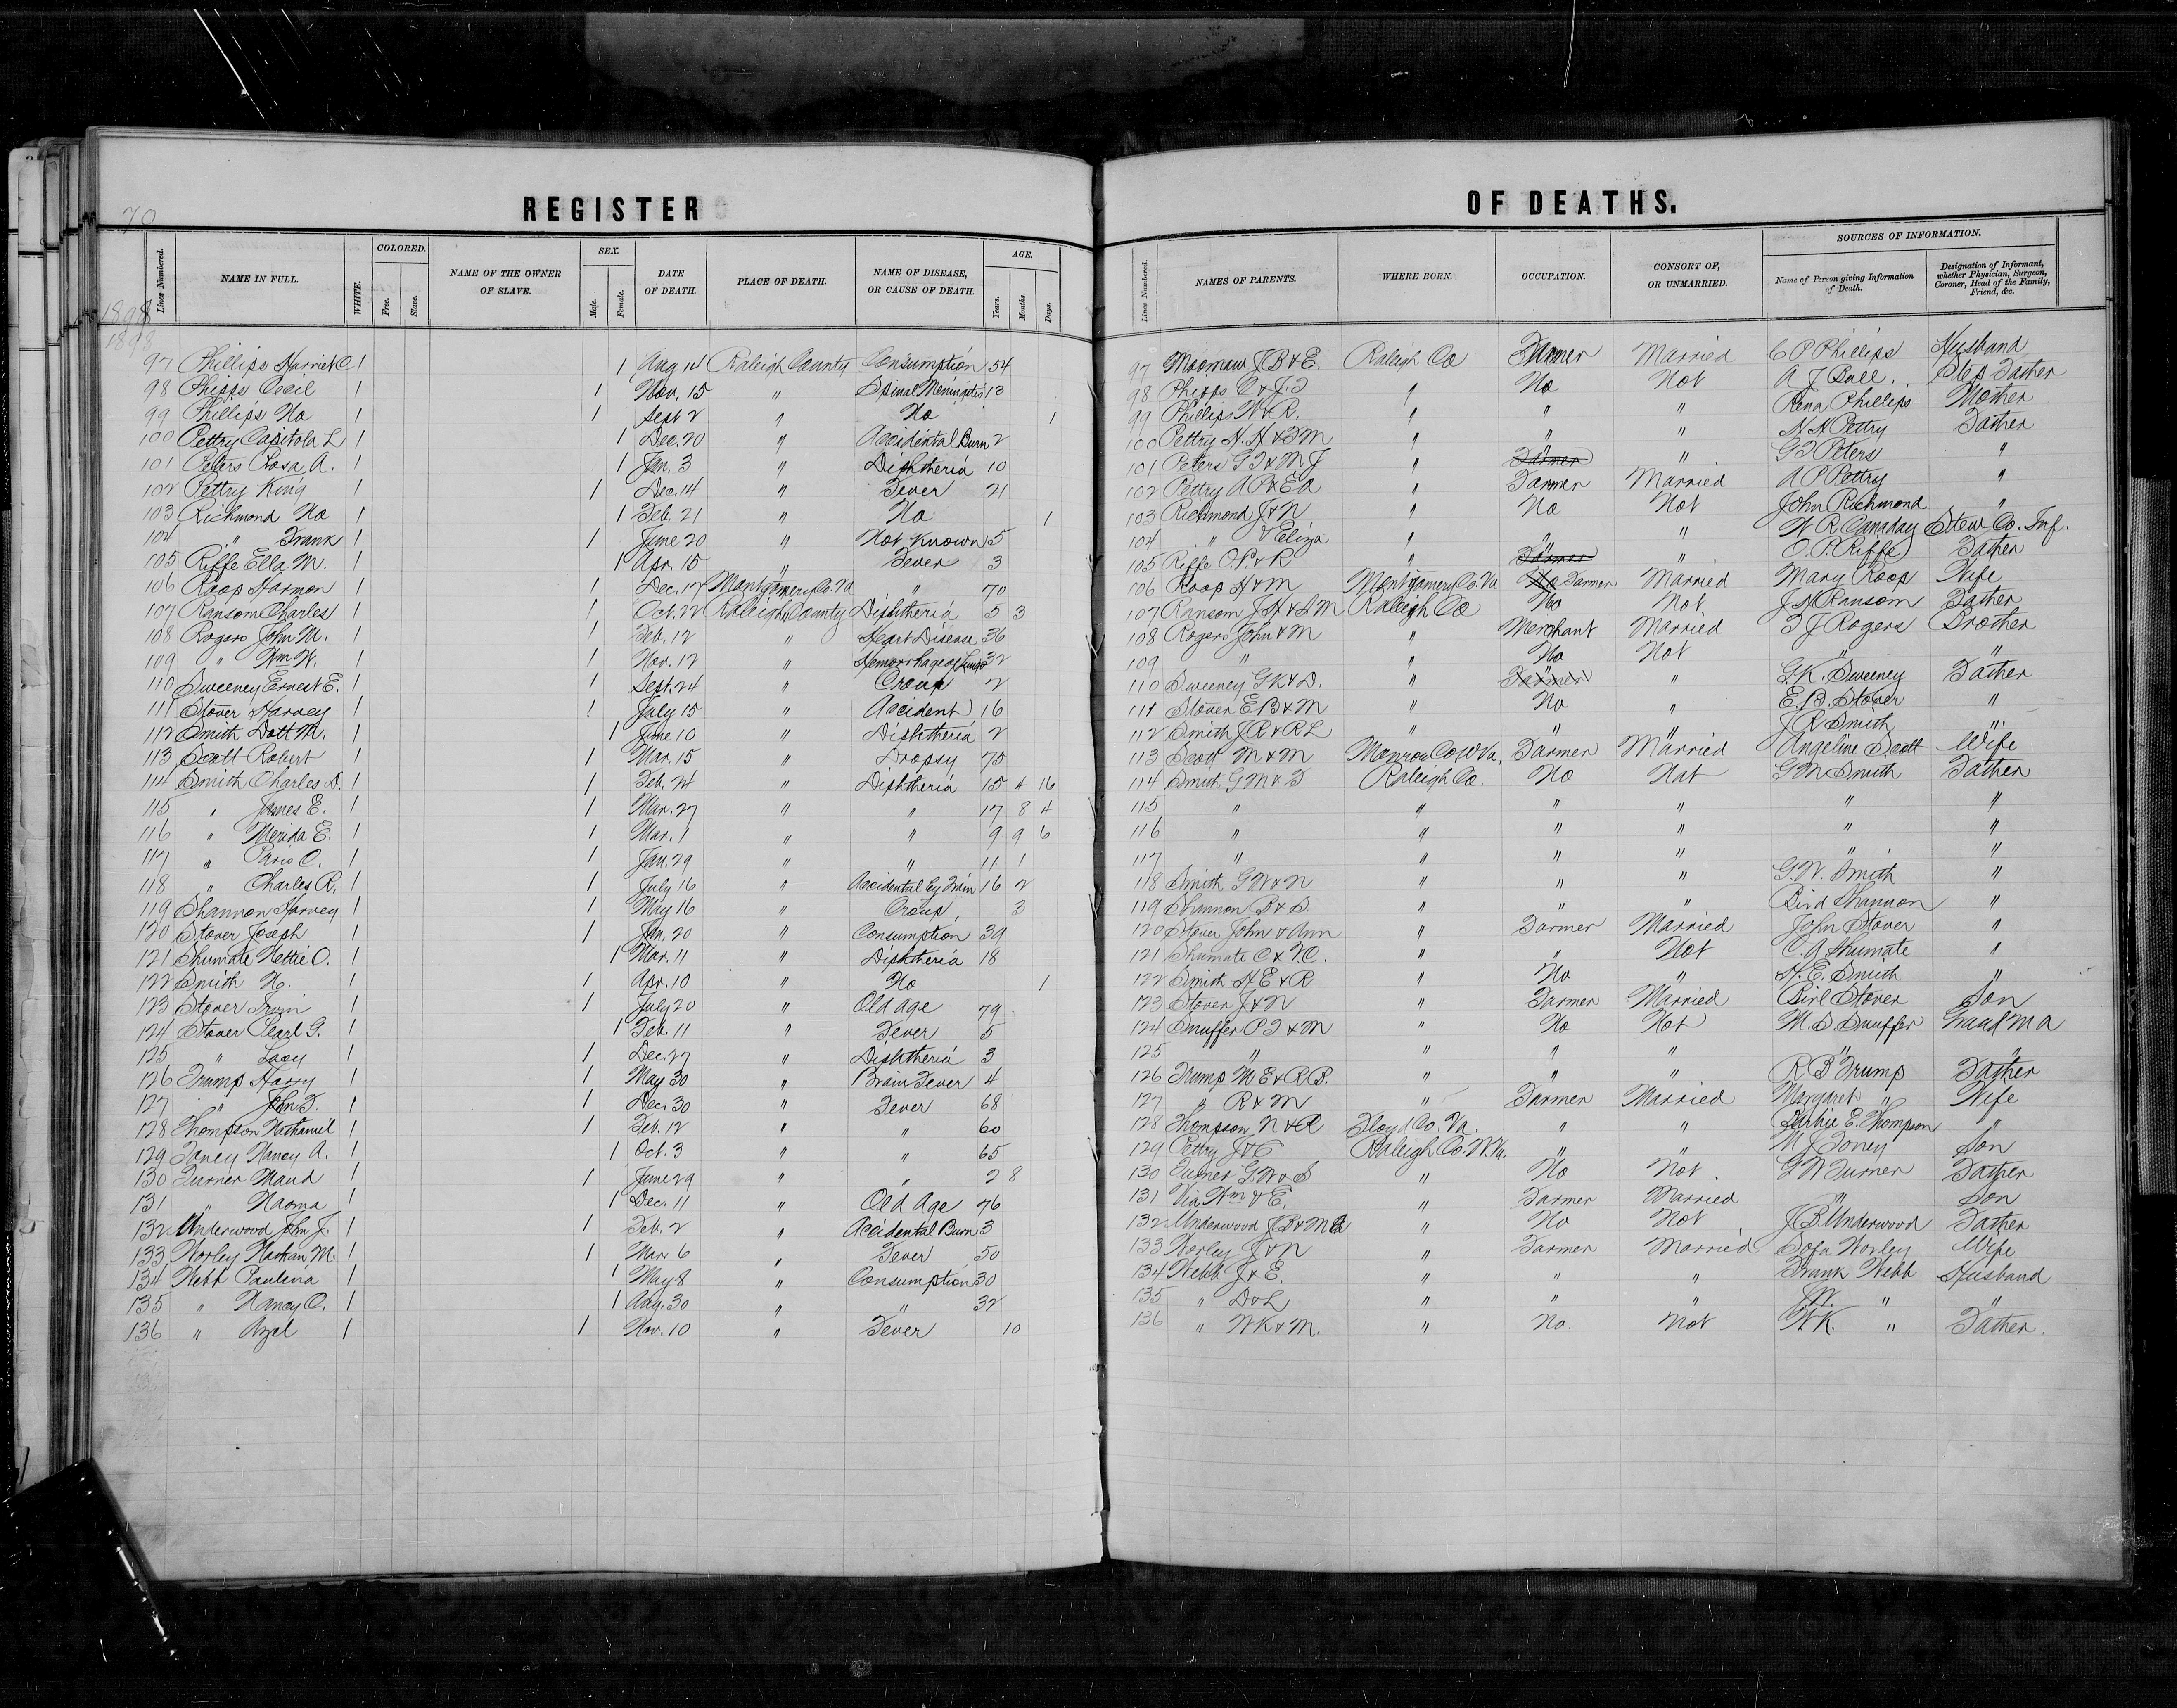 REGISTER
OF DEATHS.
70
Lines Numbered.
NAME IN FULL.
WHITE.
COLORED.
Free.
Slave.
NAME OF THE OWNER OF SLAVE.
SEX.
Male.
Female.
DATE OF DEATH.
PLACE OF DEATH.
NAME OF DISEASE, OR CAUSE OF DEATH.
AGE.
Years.
Months.
Days.
Lines Numbered.
NAMES OF PARENTS.
WHERE BORN.
OCCUPATION.
CONSORT OF, OR UNMARRIED.
SOURCES OF INFORMATION.
Name of Person giving Information of Death.
Designation of Informant, whether Physician, Surgeon, Coroner, Head of the Family, Friend, &c.
1898
1898
97 Phillips Harriet C 1 1 Aug 14 Raleigh County Consumption 54
98 Phipps Cecil 1 1 Nov. 15 " Spinal Meningitis 13
99 Phillips No 1 1 Sept 2 " No 1
100 Pettry Capitola L 1 1 Dec. 20 " Accidental Burn 2
101 Peters Rosa A. 1 1 Jan. 3 " Diphtheria 10
102 Pettry King 1 1 Dec. 14 " Fever 21
103 Richmond No 1 1 Feb. 21 " No 1
104 " Frank 1 1 June 20 " Not Known 25
105 Riffe Ella M. 1 1 Apr. 15 " Fever 3
106 Roop Harmon 1 1 Dec. 17 Montgomery Co. Va " 70
107 Ransom Charles 1 1 Oct. 22 Raleigh County Diphtheria 5 3
108 Rogers John M. 1 1 Feb. 12 " Heart Disease 36
109 " Wm W. 1 1 Nov. 12 " Hemorrhage of Lungs 32
110 Sweeney Ernest E. 1 1 Sept. 24 " Croup 2
111 Stover Harvey 1 1 July 15 " Accident 16
112 Smith Dott M. 1 1 June 10 " Diphtheria 2
113 Scott Robert 1 1 Mar. 15 " Dropsy 75
114 Smith Charles D. 1 1 Feb. 24 " Diphtheria 15 4 16
115 " James E. 1 1 Mar. 27 " " 17 8 4
116 " Merida E. 1 1 Mar. 1 " " 9 9 6
117 " Paris O. 1 1 Jan. 29 " " 11 1
118 " Charles R. 1 1 July 16 " Accidental by Train 16 2
119 Shannon Harvey 1 1 May 16 " Croup, 3
120 Stover Joseph 1 1 Jan. 20 " Consumption 39
121 Shumate Nettie O. 1 1 Mar. 11 " Diphtheria 18
122 Smith N. 1 1 Apr. 10 " No 1
123 Stover Irvin 1 1 July 20 " Old Age 79
124 Stover Pearl G. 1 1 Feb. 11 " Fever 5
125 " Lacy 1 1 Dec. 27 " Diphtheria 3
126 Trump Harry 1 1 May 30 " Brain Fever 4
127 " John T. 1 1 Dec. 30 " Fever 68
128 Thompson Nathaniel 1 1 Feb. 12 " " 60
129 Toney Nancy A. 1 1 Oct. 3 " " 65
130 Turner Maud 1 1 June 29 " " 2 8
131 " Naoma 1 1 Dec. 11 " Old Age 76
132 Underwood John J. 1 1 Feb. 2 " Accidental Burn 3
133 Worley Nathan M. 1 1 Mar. 6 " Fever 50
134 Webb Paulina 1 1 May 8 " Consumption 30
135 " Nancy O. 1 1 Aug. 30 " " 32
136 " Azel 1 1 Nov. 10 " Fever 10
97 Moomaw J B & E. Raleigh Co Farmer Married C P Phillips Husband
98 Phipps C & J. F " No Not A J Bull Step Father
99 Phillips W & R. " " " Rena Phillips Mother
100 Pettry N. H & F M " " " N H Pettry Father
101 Peters G F & M J " Farmer " G F Peters "
102 Pettry A P & E A " Farmer Married A P Pettry "
103 Richmond J & N " No Not John Richmond "
104 " & Eliza " " " W R Canaday Stew Co. Inf.
105 Riffe O. P. & R " Farmer " O. P. Riffe Father
106 Roop H & M Montgomery Co. Va No Farmer Married Mary Roop Wife
107 Ransom J H & A M Raleigh Co No Not J H Ransom Father
108 Rogers John & M " Merchant Married F J Rogers Brother
109 " " No Not " "
110 Sweeney G K & D. " Farmer " G. K. Sweeney Father
111 Stover E B & M " No " E. B. Stover "
112 Smith J R & R L " " " J R Smith "
113 Scott M & M Monroe Co W Va. Farmer Married Angeline Scott Wife
114 Smith G M & F Raleigh Co. No Not G M Smith Father
115 " " " " " "
116 " " " " " "
117 " " " " " "
118 Smith G W & N " " " G. W. Smith "
119 Shannon B & S. " " " Bird Shannon "
120 Stover John & Ann " Farmer Married John Stover "
121 Shumate C & V. C. " " Not C. A Shumate "
122 Smith H E & R " No " H. E. Smith "
123 Stover J & N " Farmer Married Birl Stover Son
124 Snuffer P F & M " No Not M. S Snuffer Grand Ma
125 " " " " " "
126 Trump M E & R B. " " " R B Trump Father
127 " R & M " Farmer Married Margaret " Wife
128 Thompson N & R Floyd Co. Va. " " Barbie E. Thompson "
129 Pettry J & C Raleigh Co. W. Va. " " M J Toney Son
130 Turner G. W & S " No Not G W Turner Father
131 Via Wm & E. " Farmer Married " Son
132 Underwood J B & M E " No Not J B Underwood Father
133 Worley J & N " Farmer Married Sofa Worley Wife
134 Webb J & E. " " " Frank Webb Husband
135 " D & L " " " W. " "
136 " W K & M. " No. Not W K. " Father.